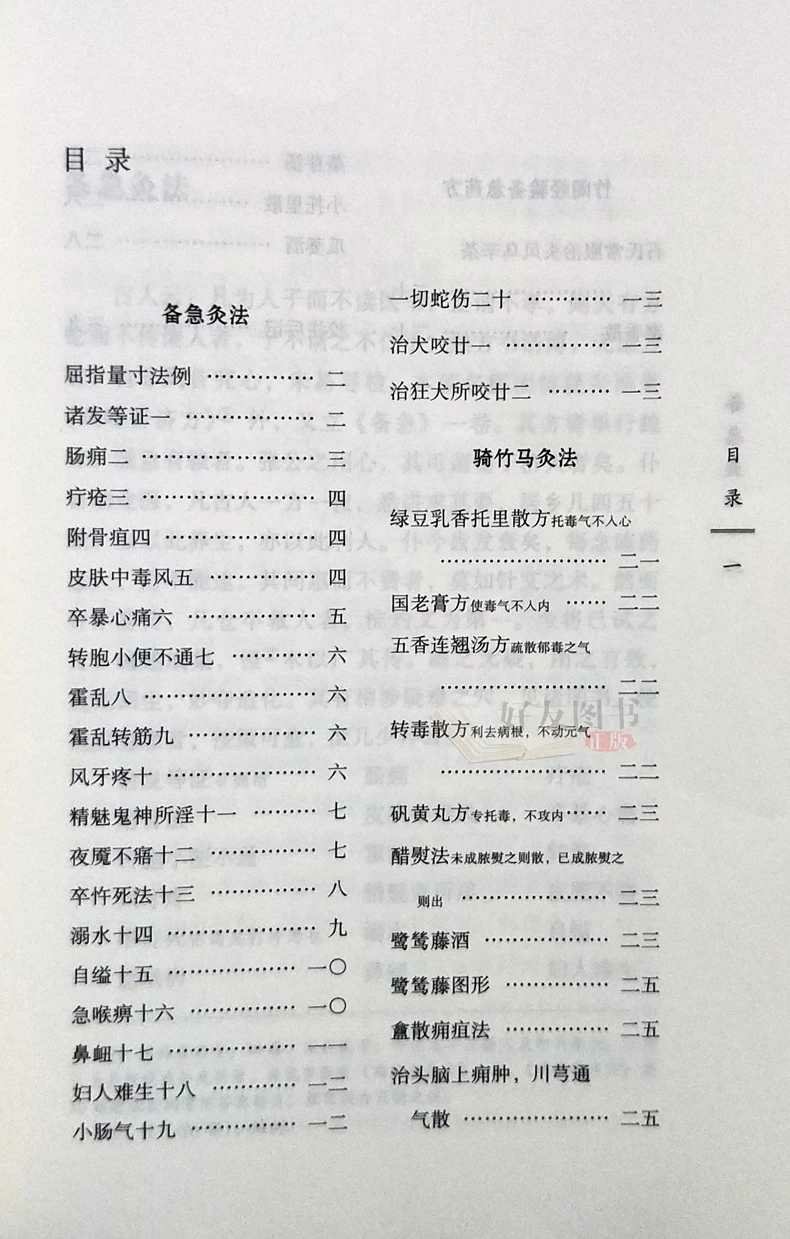 目录
备急灸法
屈指量寸法例 ……………… 二
诸发等证一 ……………… 二
肠痈二 ……………… 三
疔疮三 ……………… 四
附骨疽四 ……………… 四
皮肤中毒风五 ……………… 四
卒暴心痛六 ……………… 五
转胞小便不通七 ……………… 六
霍乱八 ……………… 六
霍乱转筋九 ……………… 六
风牙疼十 ……………… 六
精魅鬼神所淫十一 ……………… 七
夜魇不寤十二 ……………… 七
卒忤死法十三 ……………… 八
溺水十四 ……………… 九
自缢十五 ……………… 一〇
急喉痹十六 ……………… 一〇
鼻衄十七 ……………… 一一
妇人难生十八 ……………… 一二
小肠气十九 ……………… 一二
一切蛇伤二十 ……………… 一三
治犬咬廿一 ……………… 一三
治狂犬所咬廿二 ……………… 一三
骑竹马灸法
绿豆乳香托里散方托毒气不入心
……………… 二一
国老膏方使毒气不入内 …… 二二
五香连翘汤方疏散郁毒之气
……………… 二二
转毒散方利去病根，不动元气
……………… 二二
矾黄丸方专托毒，不攻内 …… 二三
醋熨法未成脓熨之则散，已成脓熨之
则出 ……………… 二三
鹭鸶藤酒 ……………… 二三
鹭鸶藤图形 ……………… 二五
龛散痈疽法 ……………… 二五
治头脑上痈肿，川芎通
气散 ……………… 二五
目录
一
好友图书
正版